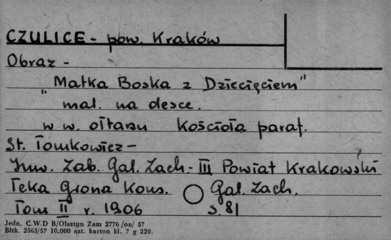 CZULICE - pow. Kraków
Obraz -
„Matka Boska z Dziecięciem"
mal. na desce.
w w. ołtarzu Kościoła paraf.
St. Tomkowicz -
Inw. Zab. Gal. Zach. - III Powiat Krakowski
Teka Grona Kons. Gal. Zach.
Tom II r. 1906 s. 81
Jedn. C.W D B/Olsztyn Zam 2776/on/ 57
Bltk. 2563/57 10,000 szt. karton kl. 7 g 220.